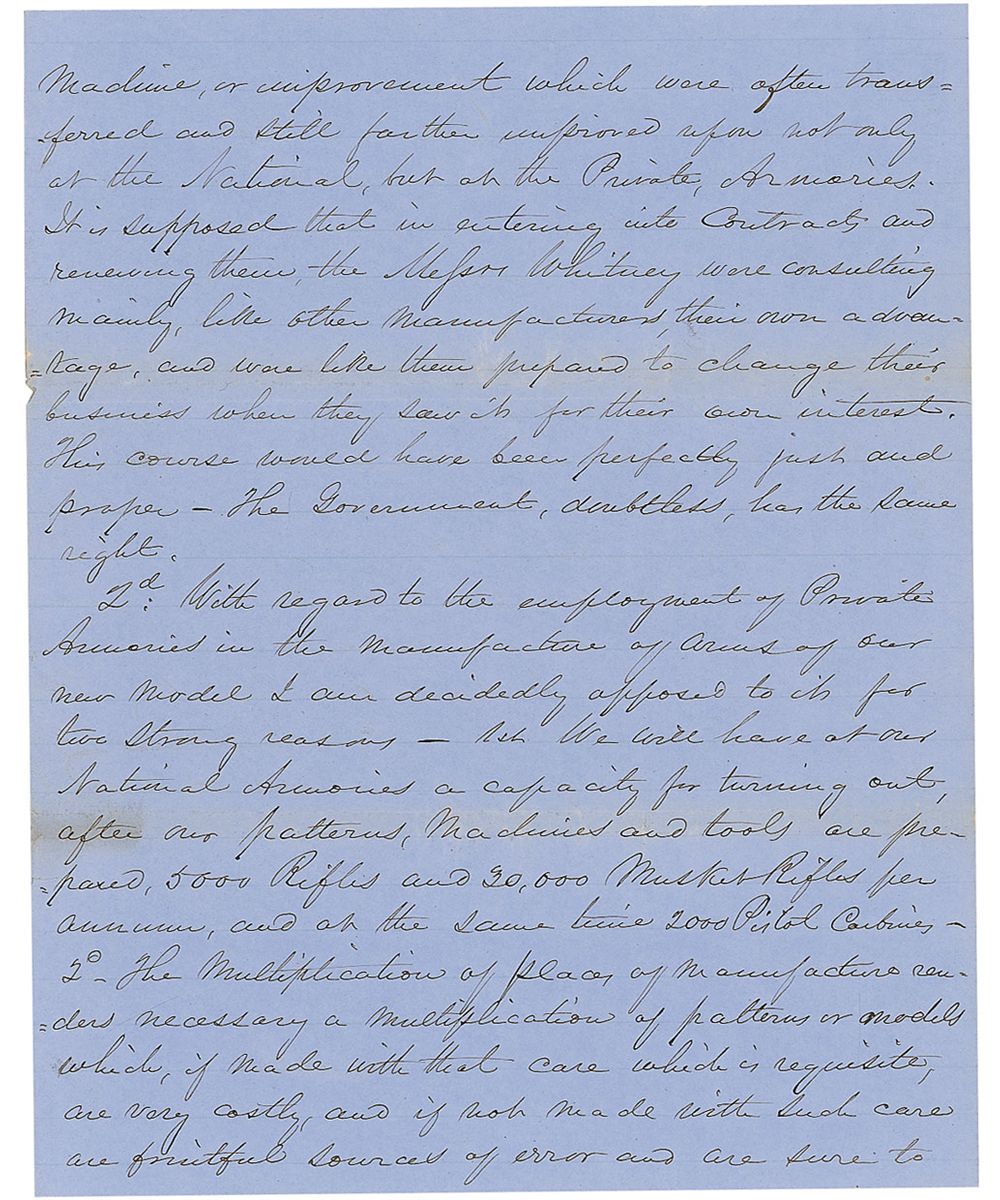 Machine, or improvement which were often trans=
=ferred and still farther improved upon not only
at the National, but at the Private, Armories.
It is supposed that in entering into Contracts and
renewing them, the Messrs Whitney were consulting
mainly, like other manufacturers, their own advan-
=tage, and were like them prepared to change their
business when they saw it for their own interest.
This course would have been perfectly just and
proper – The Government, doubtless, has the same
right.
2d. With regard to the employment of Private
Armories in the manufacture of arms of our
new model I am decidedly opposed to it for
two strong reasons – 1st We will have at our
National Armories a capacity for turning out,
after our patterns, Machines and tools are pre-
=pared, 5000 Rifles and 30,000 Musket Rifles per
annum, and at the same time 2000 Pistol Carbines –
2o – The Multiplication of places of manufacture ren-
=ders necessary a multiplication of patterns or models
which, if made with that care which is requisite,
are very costly, and if not made with such care
are fruitful sources of error and are sure to